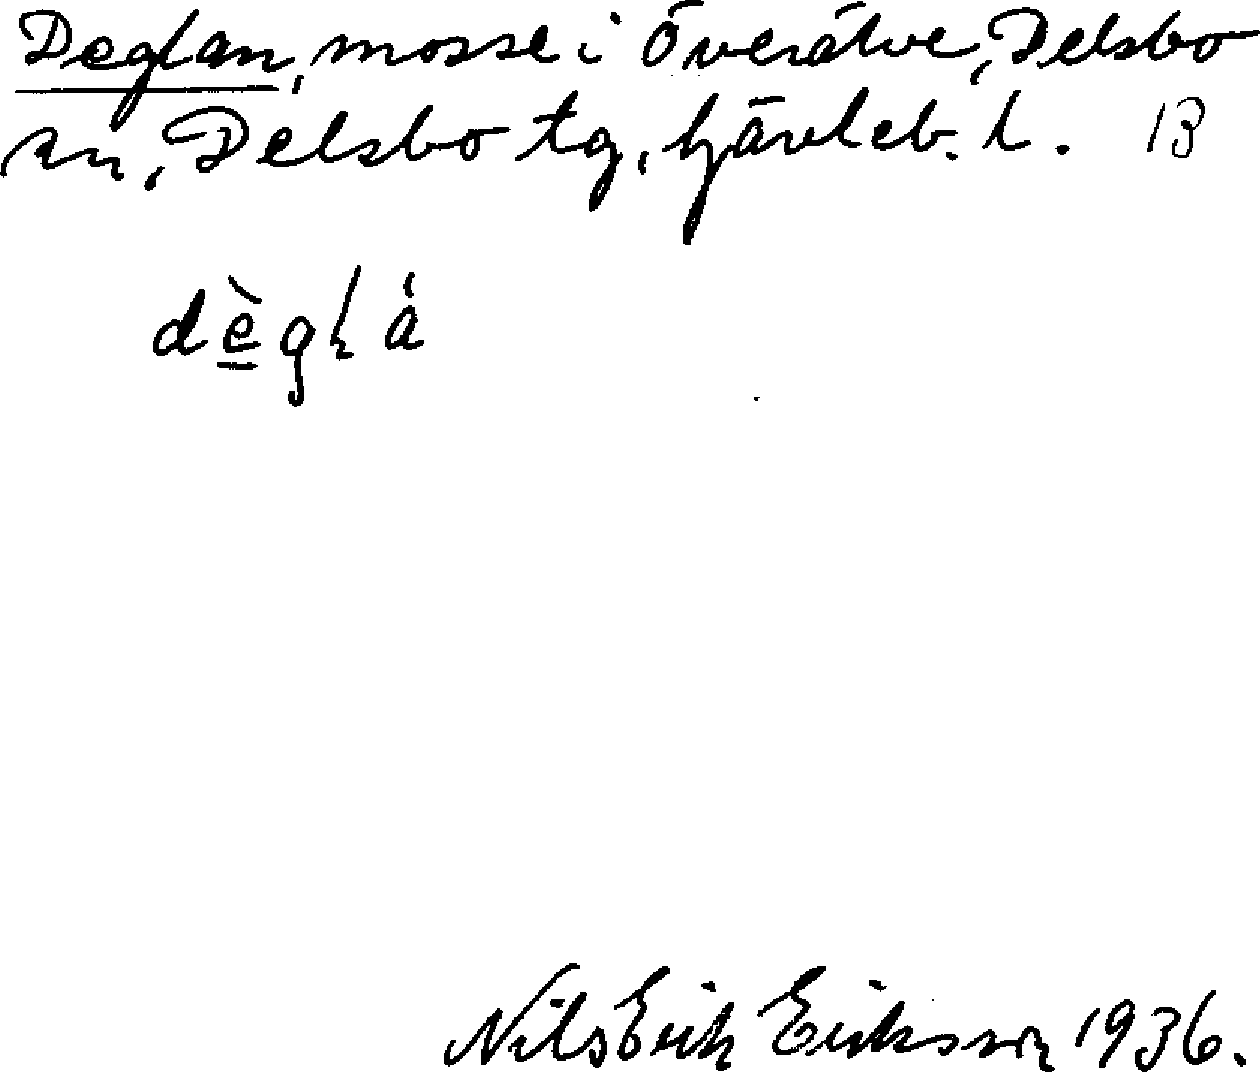 Deglan, mosse i Överälve, Delsbo
sn, Delsbo tg, Gävleb. l. 13
Nils Erik Eriksson 1936.